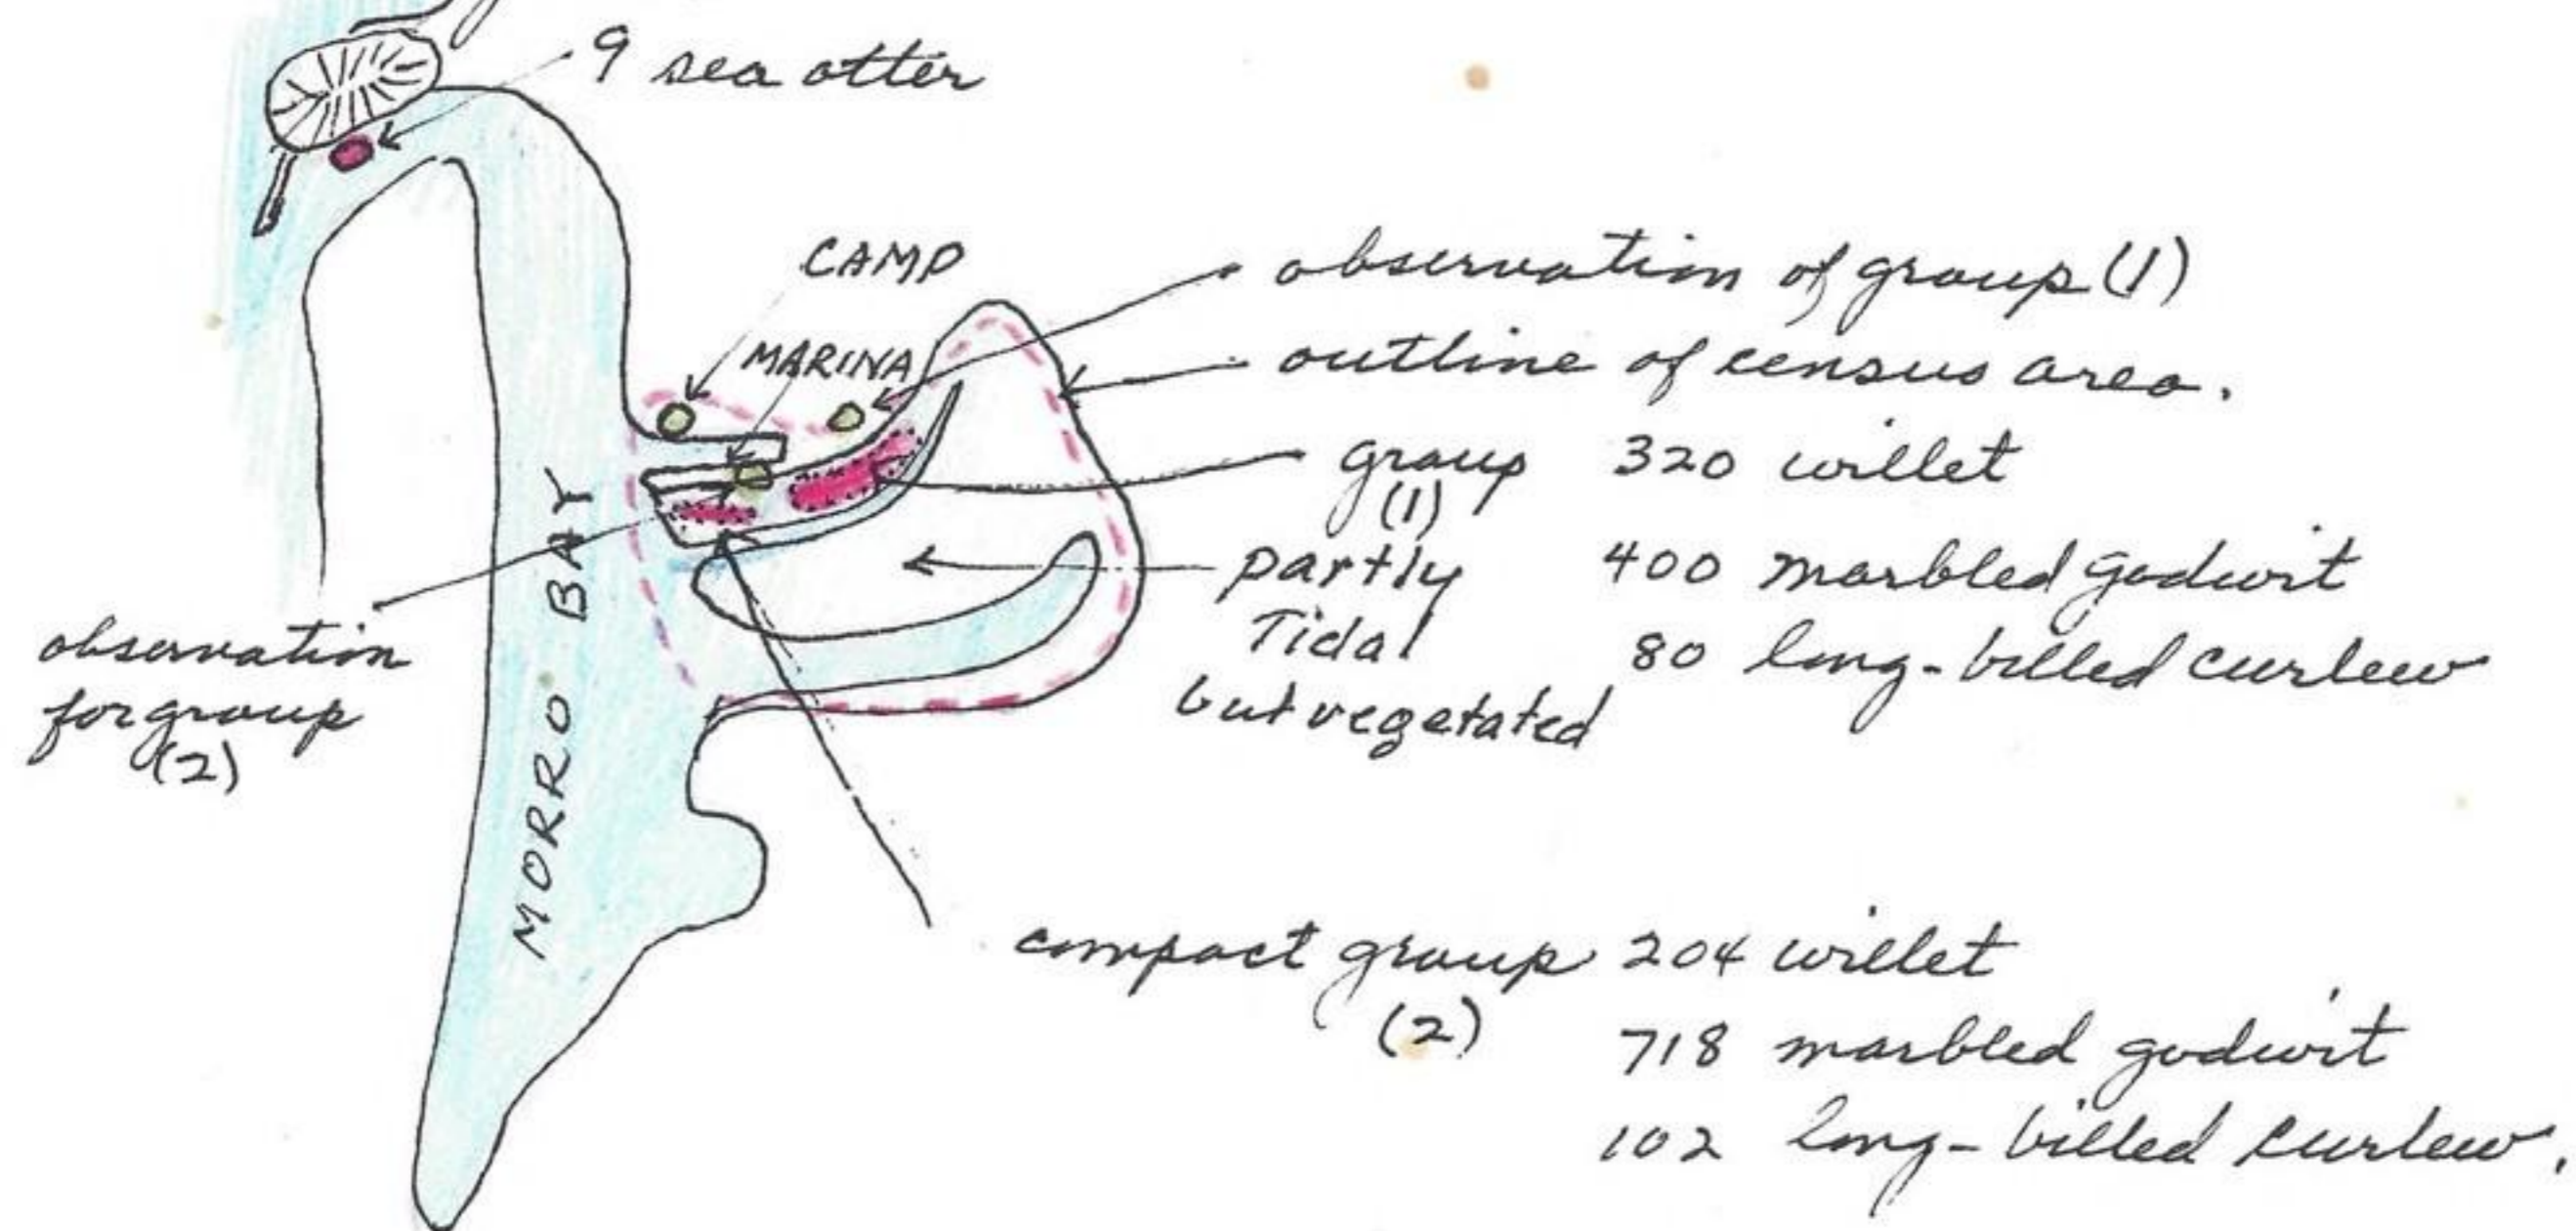 9 sea otter
CAMP
MARINA
observation of group (1)
outline of census area.
group 320 willet
(1)
400 marbled godwit
partly
Tidal
but vegetated
80 long-billed curlew
observation
for group
(2)
MORRO BAY
compact group 204 willet
(2)
718 marbled godwit
102 long-billed curlew.